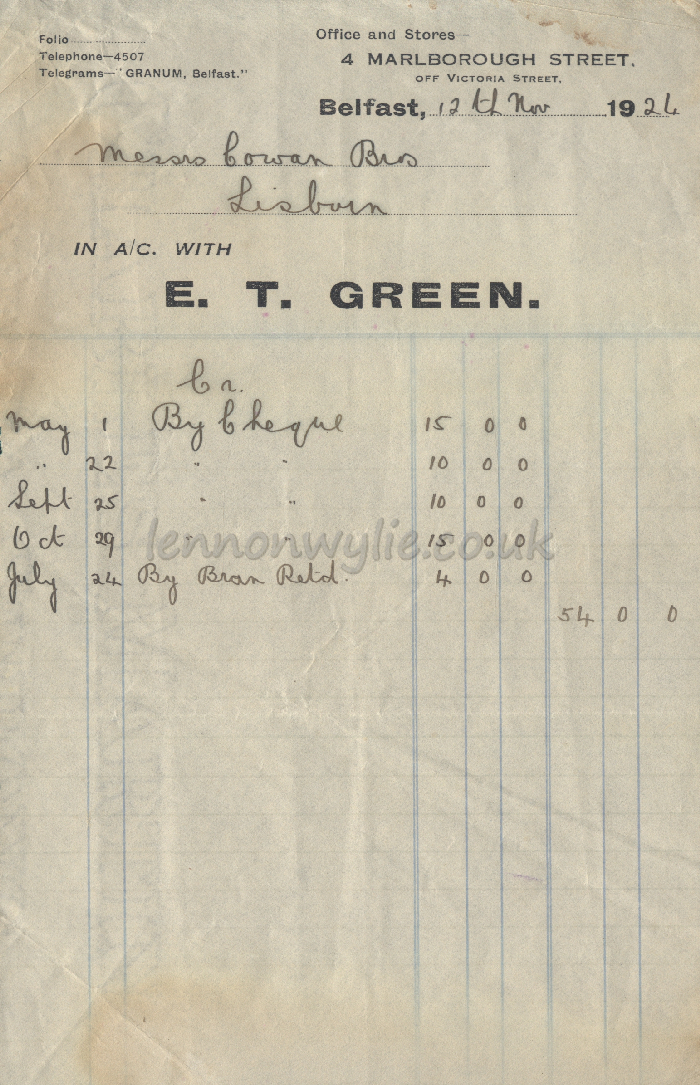 Folio
Telephone—4507
Telegrams—"GRANUM, Belfast."
Office and Stores—
4 MARLBOROUGH STREET,
OFF VICTORIA STREET.
Belfast, 12th Nov 1924
Messrs Cowan Bros
Lisburn
IN A/C. WITH
E. T. GREEN.
Cr.
May 1 By Cheque 15 0 0
" 22 " " 10 0 0
Sept 25 " " 10 0 0
Oct 29 " " 15 0 0
July 24 By Bran Retd. 4 0 0
54 0 0
lennonwylie.co.uk